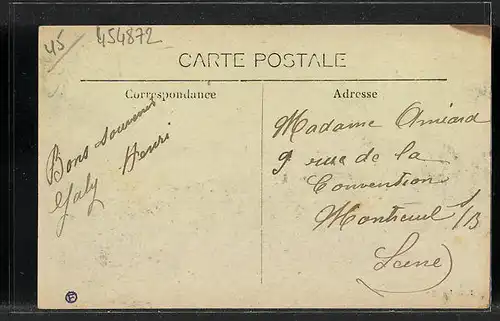 45
454872
CARTE POSTALE
Correspondance
Adresse
Bons souvenirs
Gaby Henri
Madame Amiard
9 rue de la
Convention
Montreuil s/B
Seine)